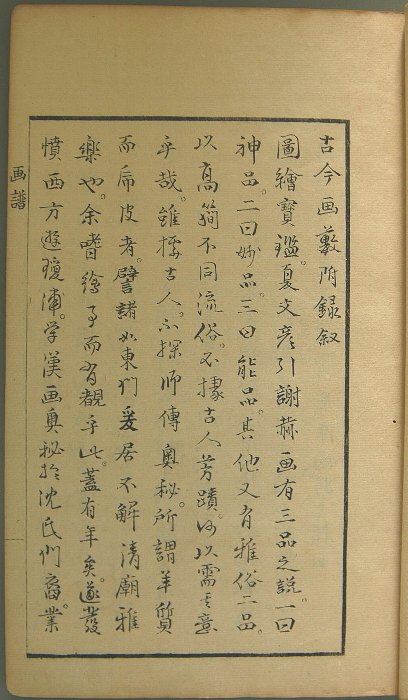 古今画藪附録叙
圖繪寶鑑。夏文彦引謝赫画有三品之説。一曰
神品。二曰妙品。三曰能品。其他又有雅俗二品。
以高簡不同流俗。不據古人芳蹟。何以需其意
乎哉。雖據古人。不探師傳奥秘。所謂羊質
而虎皮者。譬諸如東門爰居不解清廟雅
樂也。余嗜繪事而有覩乎此。蓋有年矣。遂發
憤西方遊瓊浦。学漢画奥秘於沈氏們裔業
画譜